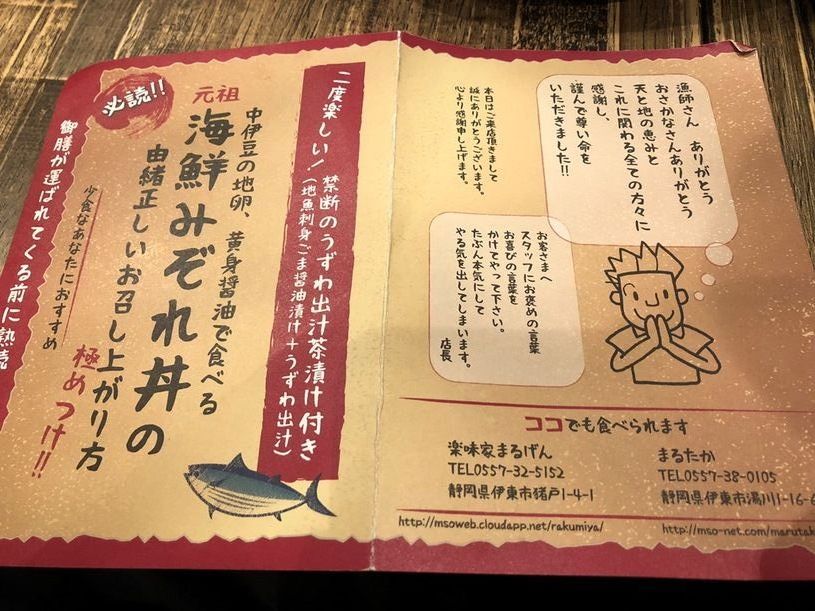 漁師さん ありがとう
おさかなさんありがとう
天と地の恵みと
これに関わる全ての方々に
感謝し、
謹んで尊い命を
いただきました!!
本日はご来店頂きまして
誠にありがとうございます。
心より感謝申し上げます。
お客さまへ
スタッフにお褒めの言葉
お喜びの言葉を
かけてやって下さい。
たぶん本気にして
やる気を出してしまいます。
店長
ココでも食べられます
楽味家まるげん
TEL0557-32-5152
静岡県伊東市猪戸1-4-1
http://msoweb.cloudapp.net/rakumiya/
まるたか
TEL0557-38-0105
静岡県伊東市湯川1-16-6
http://mso-net.com/marutak
二度楽しい!禁断のうずわ出汁茶漬け付き
(地魚刺身ごま醤油漬け+うずわ出汁)
中伊豆の地卵、黄身醤油で食べる
元祖
海鮮みぞれ丼の
由緒正しいお召し上がり方
極めつけ!!
少食なあなたにおすすめ
必読!!
御膳が運ばれてくる前に熟読